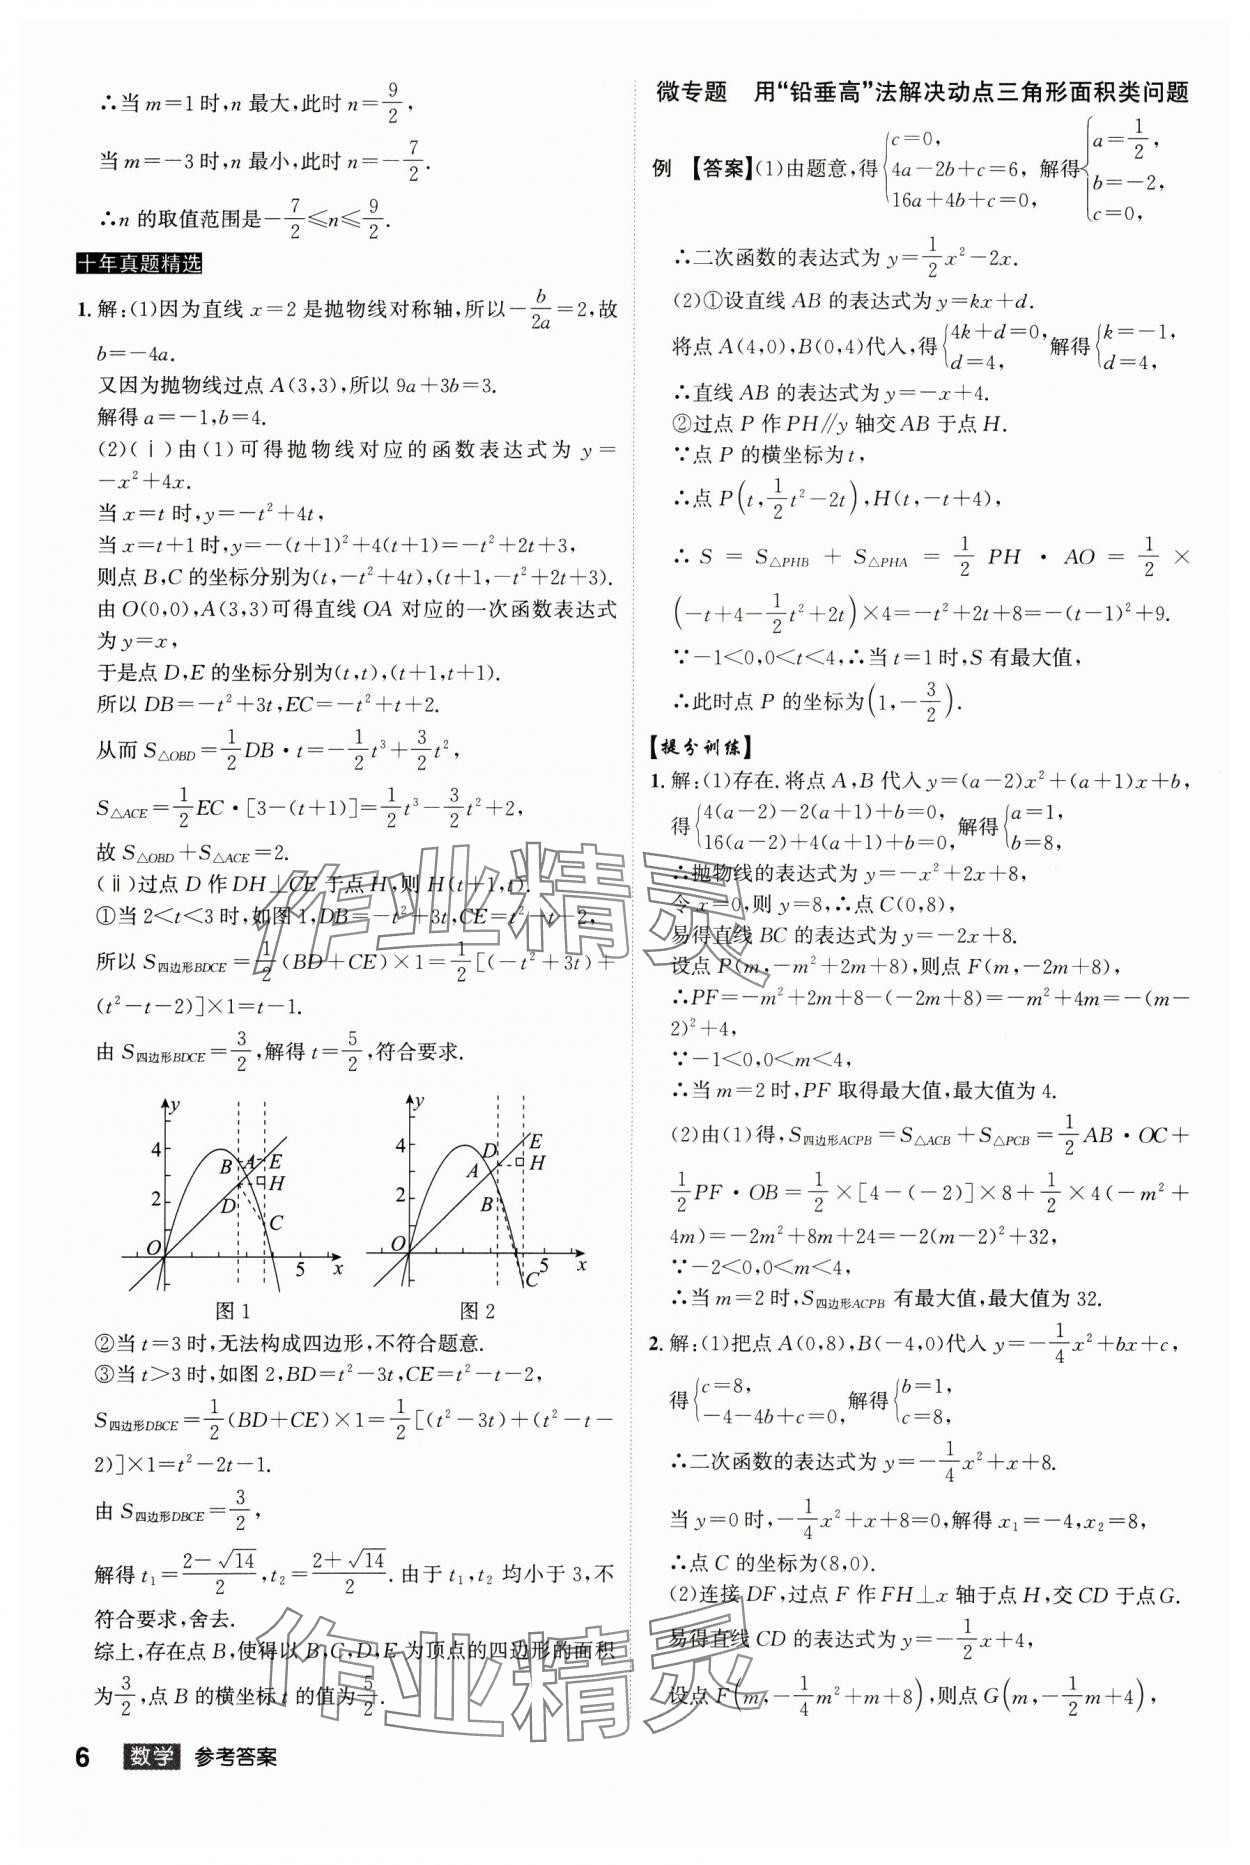 ∴当 m=1 时,n 最大,此时 n=9/2,
当 m=-3 时,n 最小,此时 n=-7/2.
∴n 的取值范围是-7/2≤n≤9/2.
十年真题精选
1. 解:(1)因为直线 x=2 是抛物线对称轴,所以-b/2a=2,故
b=-4a.
又因为抛物线过点 A(3,3),所以 9a+3b=3.
解得 a=-1,b=4.
(2)(ⅰ)由(1)可得抛物线对应的函数表达式为 y=
-x²+4x.
当 x=t 时,y=-t²+4t,
当 x=t+1 时,y=-(t+1)²+4(t+1)=-t²+2t+3,
则点 B,C 的坐标分别为(t,-t²+4t),(t+1,-t²+2t+3).
由 O(0,0),A(3,3)可得直线 OA 对应的一次函数表达式
为 y=x,
于是点 D,E 的坐标分别为(t,t),(t+1,t+1).
所以 DB=-t²+3t,EC=-t²+t+2.
从而 S△OBD=1/2DB·t=-1/2t³+3/2t²,
S△ACE=1/2EC·[3-(t+1)]=1/2t³-3/2t²+2,
故 S△OBD+S△ACE=2.
(ⅱ)过点 D 作 DH⊥CE 于点 H,则 H(t+1,t).
①当 2<t<3 时,如图 1,DB=-t²+3t,CE=t²-t-2,
所以 S四边形BDCE=1/2(BD+CE)×1=1/2[(-t²+3t)+
(t²-t-2)]×1=t-1.
由 S四边形BDCE=3/2,解得 t=5/2,符合要求.
y
4
2
O
5
x
B
A
E
D
H
C
图 1
y
4
2
O
5
x
D
E
A
H
B
C
图 2
②当 t=3 时,无法构成四边形,不符合题意.
③当 t>3 时,如图 2,BD=t²-3t,CE=t²-t-2,
S四边形DBCE=1/2(BD+CE)×1=1/2[(t²-3t)+(t²-t-
2)]×1=t²-2t-1.
由 S四边形DBCE=3/2,
解得 t₁=(2-√14)/2,t₂=(2+√14)/2.由于 t₁,t₂ 均小于 3,不
符合要求,舍去.
综上,存在点 B,使得以 B,C,D,E 为顶点的四边形的面积
为3/2,点 B 的横坐标 t 的值为5/2.
6 数学 参考答案
微专题 用“铅垂高”法解决动点三角形面积类问题
例 【答案】(1)由题意,得{c=0, 4a-2b+c=6, 16a+4b+c=0, 解得{a=1/2, b=-2, c=0,
∴二次函数的表达式为 y=1/2x²-2x.
(2)①设直线 AB 的表达式为 y=kx+d.
将点 A(4,0),B(0,4)代入,得{4k+d=0, d=4, 解得{k=-1, d=4,
∴直线 AB 的表达式为 y=-x+4.
②过点 P 作 PH∥y 轴交 AB 于点 H.
∵点 P 的横坐标为 t,
∴点 P(t,1/2t²-2t),H(t,-t+4),
∴ S = S△PHB + S△PHA = 1/2 PH · AO = 1/2 ×
(-t+4-1/2t²+2t)×4=-t²+2t+8=-(t-1)²+9.
∵-1<0,0<t<4,∴当 t=1 时,S 有最大值,
∴此时点 P 的坐标为(1,-3/2).
【提分训练】
1. 解:(1)存在.将点 A,B 代入 y=(a-2)x²+(a+1)x+b,
得{4(a-2)-2(a+1)+b=0, 16(a-2)+4(a+1)+b=0, 解得{a=1, b=8,
∴抛物线的表达式为 y=-x²+2x+8,
令 x=0,则 y=8,∴点 C(0,8),
易得直线 BC 的表达式为 y=-2x+8.
设点 P(m,-m²+2m+8),则点 F(m,-2m+8),
∴PF=-m²+2m+8-(-2m+8)=-m²+4m=-(m-
2)²+4,
∵-1<0,0<m<4,
∴当 m=2 时,PF 取得最大值,最大值为 4.
(2)由(1)得,S四边形ACPB=S△ACB+S△PCB=1/2AB·OC+
1/2PF·OB=1/2×[4-(-2)]×8+1/2×4(-m²+
4m)=-2m²+8m+24=-2(m-2)²+32,
∵-2<0,0<m<4,
∴当 m=2 时,S四边形ACPB 有最大值,最大值为 32.
2. 解:(1)把点 A(0,8),B(-4,0)代入 y=-1/4x²+bx+c,
得{c=8, -4-4b+c=0, 解得{b=1, c=8,
∴二次函数的表达式为 y=-1/4x²+x+8.
当 y=0 时,-1/4x²+x+8=0,解得 x₁=-4,x₂=8,
∴点 C 的坐标为(8,0).
(2)连接 DF,过点 F 作 FH⊥x 轴于点 H,交 CD 于点G.
易得直线 CD 的表达式为 y=-1/2x+4,
设点 F(m,-1/4m²+m+8),则点 G(m,-1/2m+4),
作业精灵
作业精灵